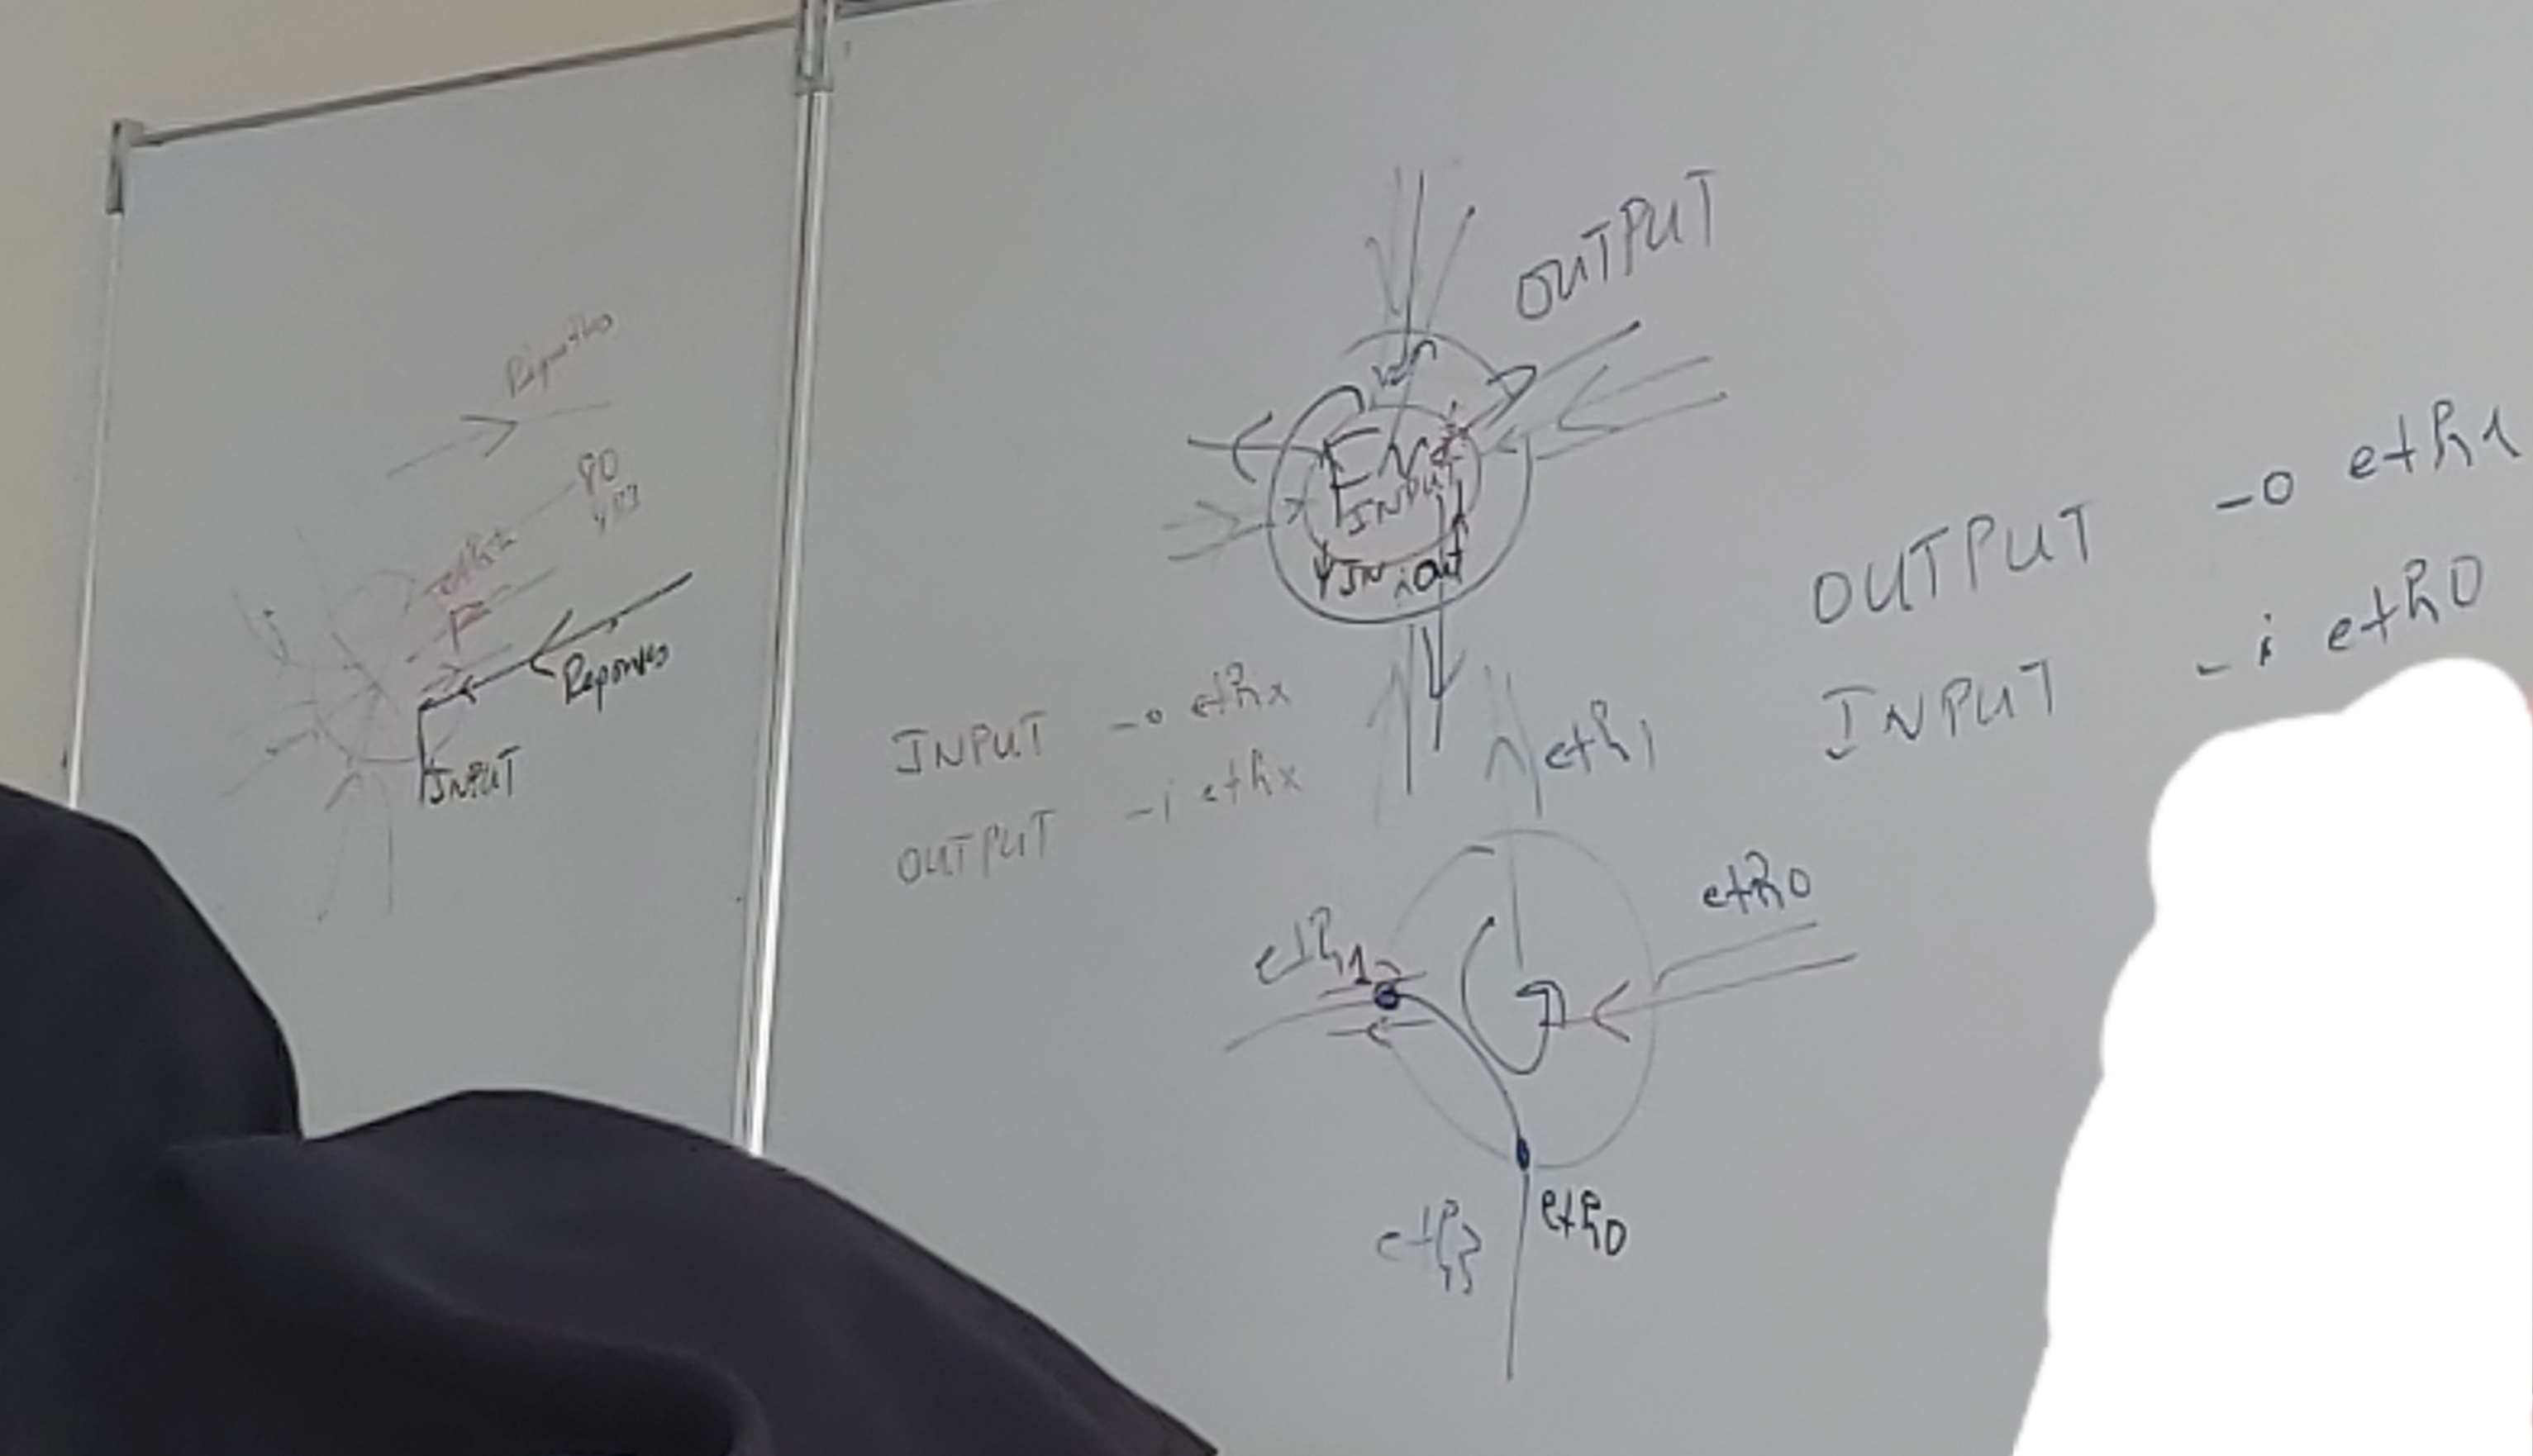 80
443
eth2
Reponses
INPUT
OUTPUT
INPUT
IN, out
INPUT -o ethx
OUTPUT -i ethx
OUTPUT -o eth1
INPUT -i eth0
eth1
eth0
eth1
eth3
eth0